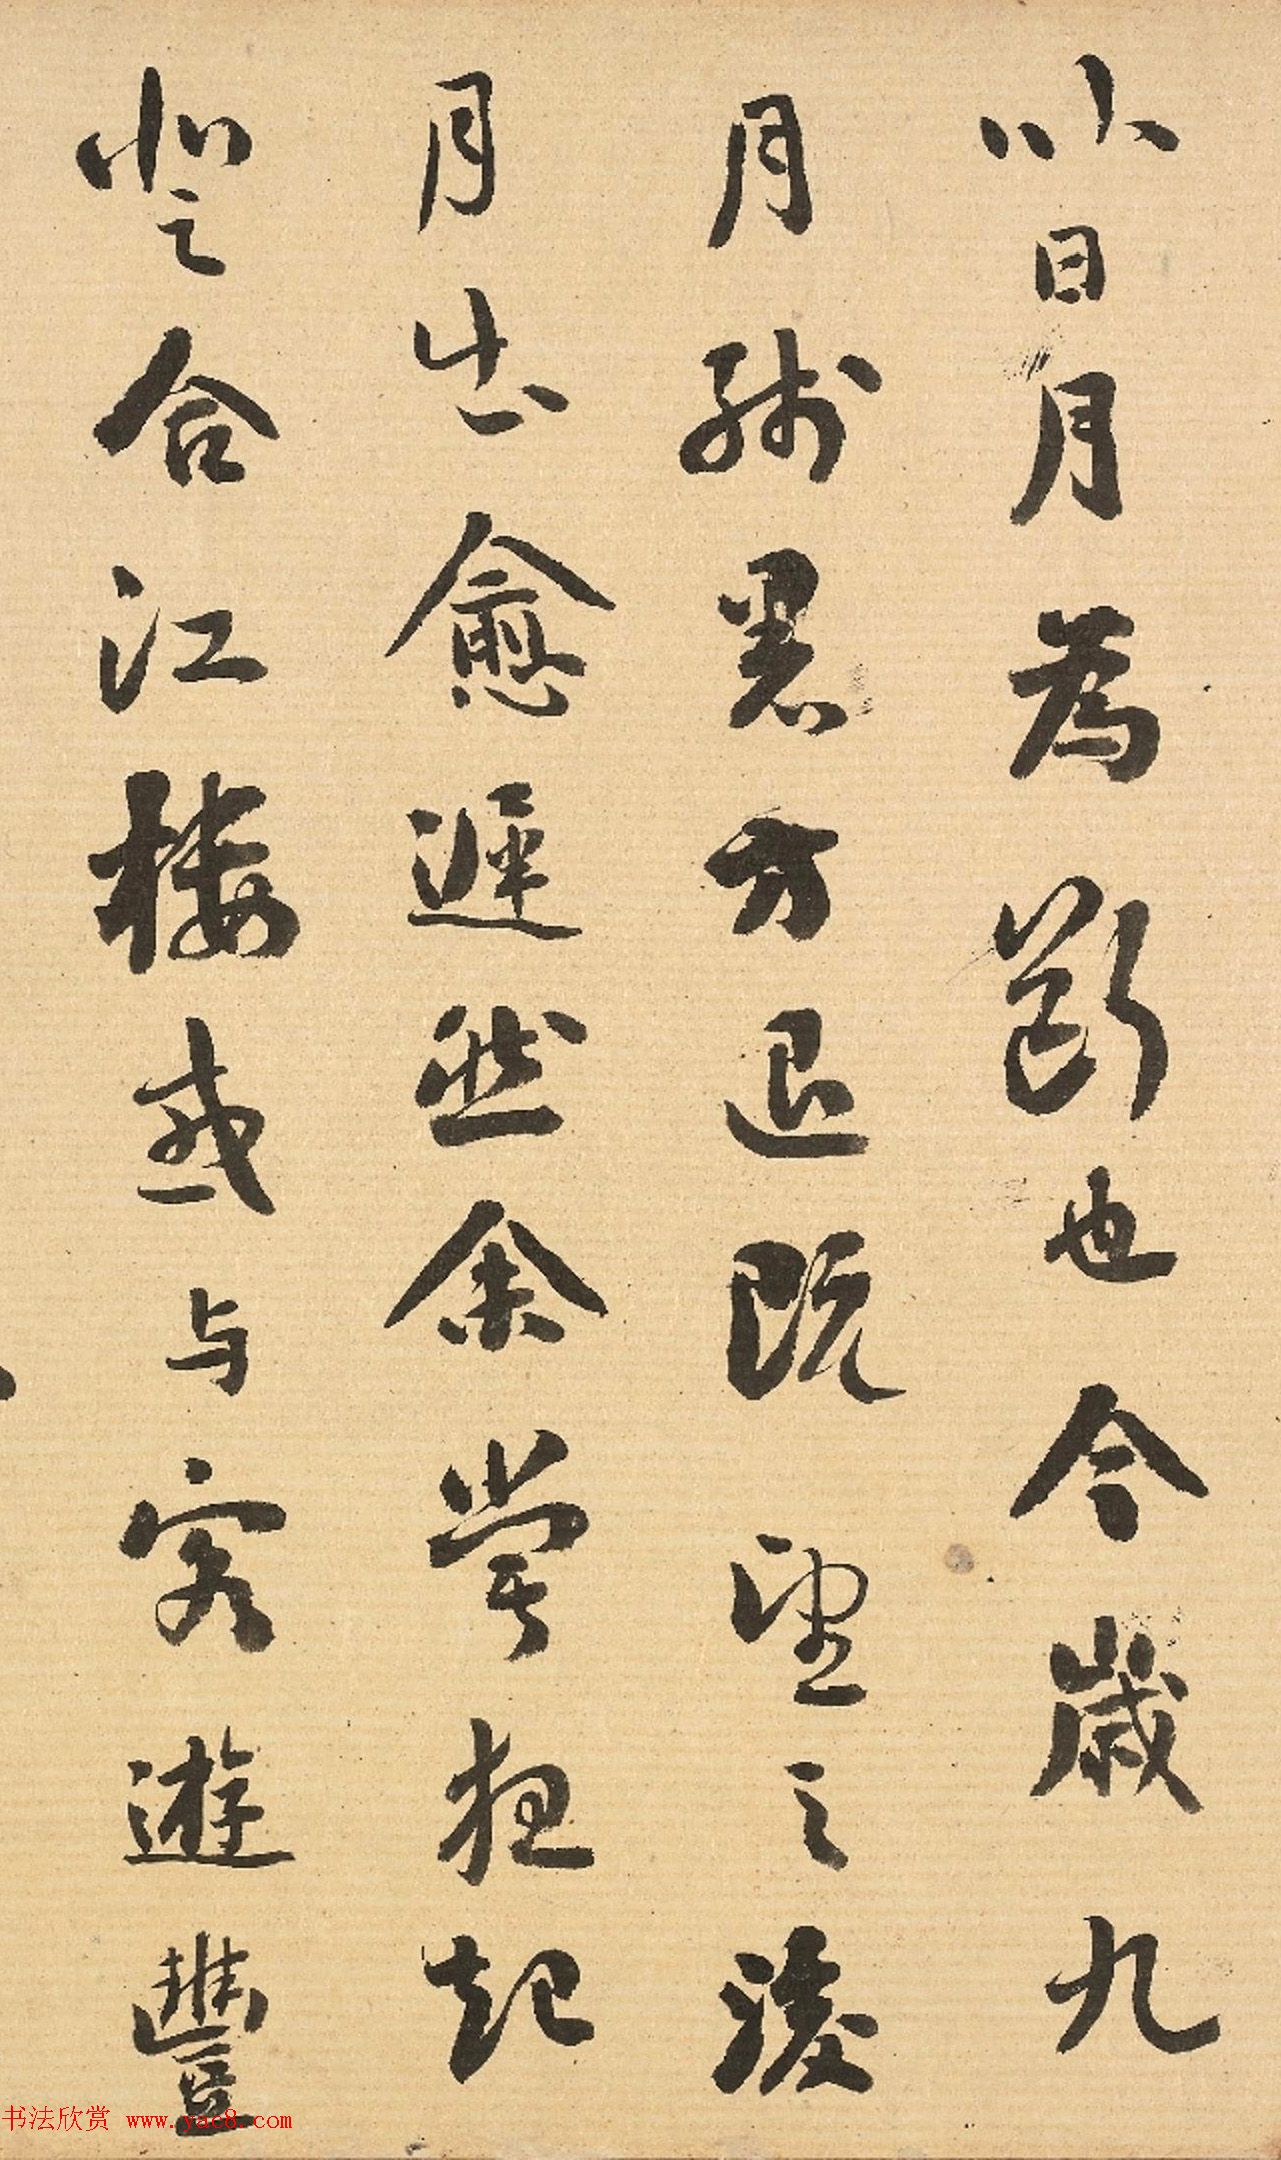 以日月為斷也今歲九
月殘暑方退既望之後
月出愈遲然余嘗夜起
登合江樓或与客遊豐
书法欣赏 www.yac8.com